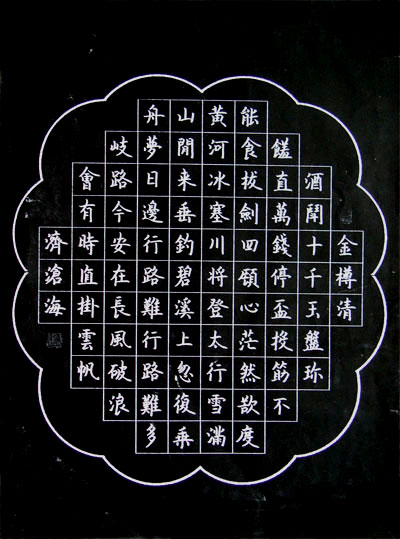 金樽清
酒鬪十千玉盤珎
饈直萬錢停盃投筯不
能食拔劍四顧心茫然欲度
黃河冰塞川將登太行雪滿
山閒来垂釣碧溪上忽復乘
舟夢日邊行路難行路難多
岐路今安在長風破浪
會有時直掛雲帆
濟滄海